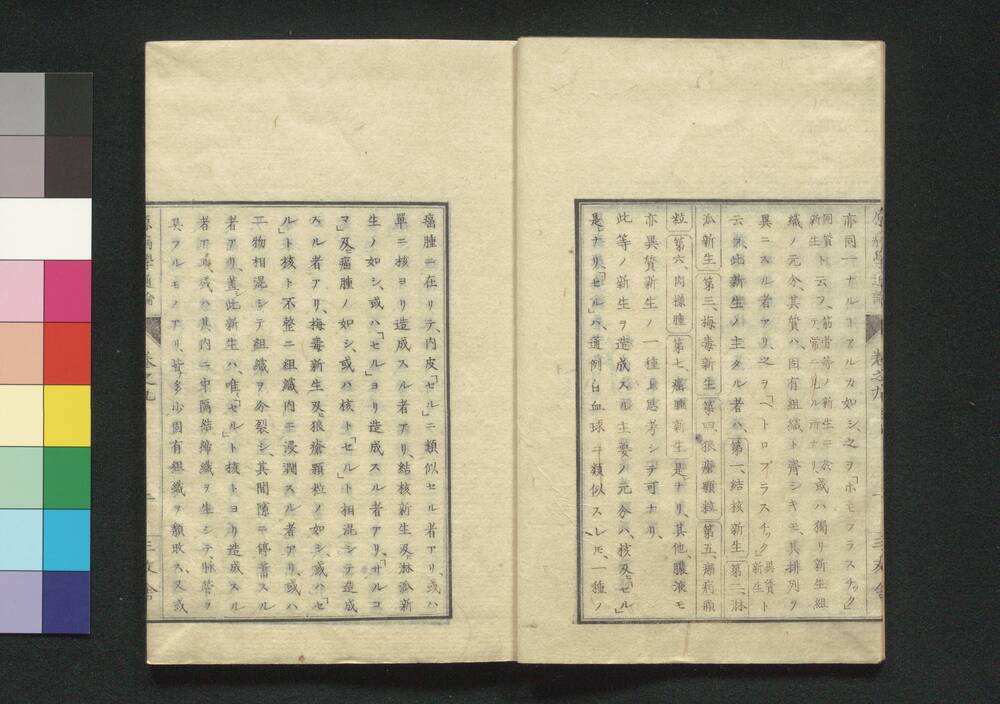 亦同一ナルヿアルカ如シ、之ヲ「ホモプラスチック」
同質新生ト云フ、筋骨等ノ新生ニ於テ常ニ見ル所ナリ、或ハ獨リ新生組
織ノ元分、其質ハ、固有組織ト齊シキモ、其排列ヲ
異ニスル者アリ、之ヲ「ヘトロプラスチック」異質新生ト
云フ、此新生ノ主タル者ハ、第一、結核新生 第二、淋
派新生 第三、梅毒新生 第四、狼瘡顆粒 第五、癩病顆
粒 第六、肉様腫 第七、癌腫新生 是ナリ、其他、膿液モ
亦異質新生ノ一種ト思考シテ可ナリ、
此等ノ新生ヲ造成スル主要ノ元分ハ、核及「セル」
是ナリ、「セル」ハ、通例白血球ニ類似スレ𪜈、一種ノ
癌腫ニ在リテ、内皮「セル」ニ類似セル者アリ、或ハ
單ニ核ヨリ造成スル者アリ、結核新生及淋派新
生ノ如シ、或ハ「セル」ヨリ造成スル者アリ、「サルコ
マ」及癌腫ノ如シ、或ハ核ト「セル」ト相混シテ造成
スル者アリ、梅毒新生及狼瘡顆粒ノ如シ、或ハ「セ
ル」ト核ト不整ニ組織内ニ浸潤スル者アリ、或ハ
二物相混シテ組織ヲ分裂シ、其間隙ニ停蓄スル
者アリ、蓋此新生ハ、唯、「セル」ト核トヨリ造成スル
者アリ、或ハ其内ニ中隔結締織ヲ生シテ、脉管ヲ
具フルモノアリ、皆多少固有組織ヲ頽敗ス、又或
原病學通論
卷之九
三友舎